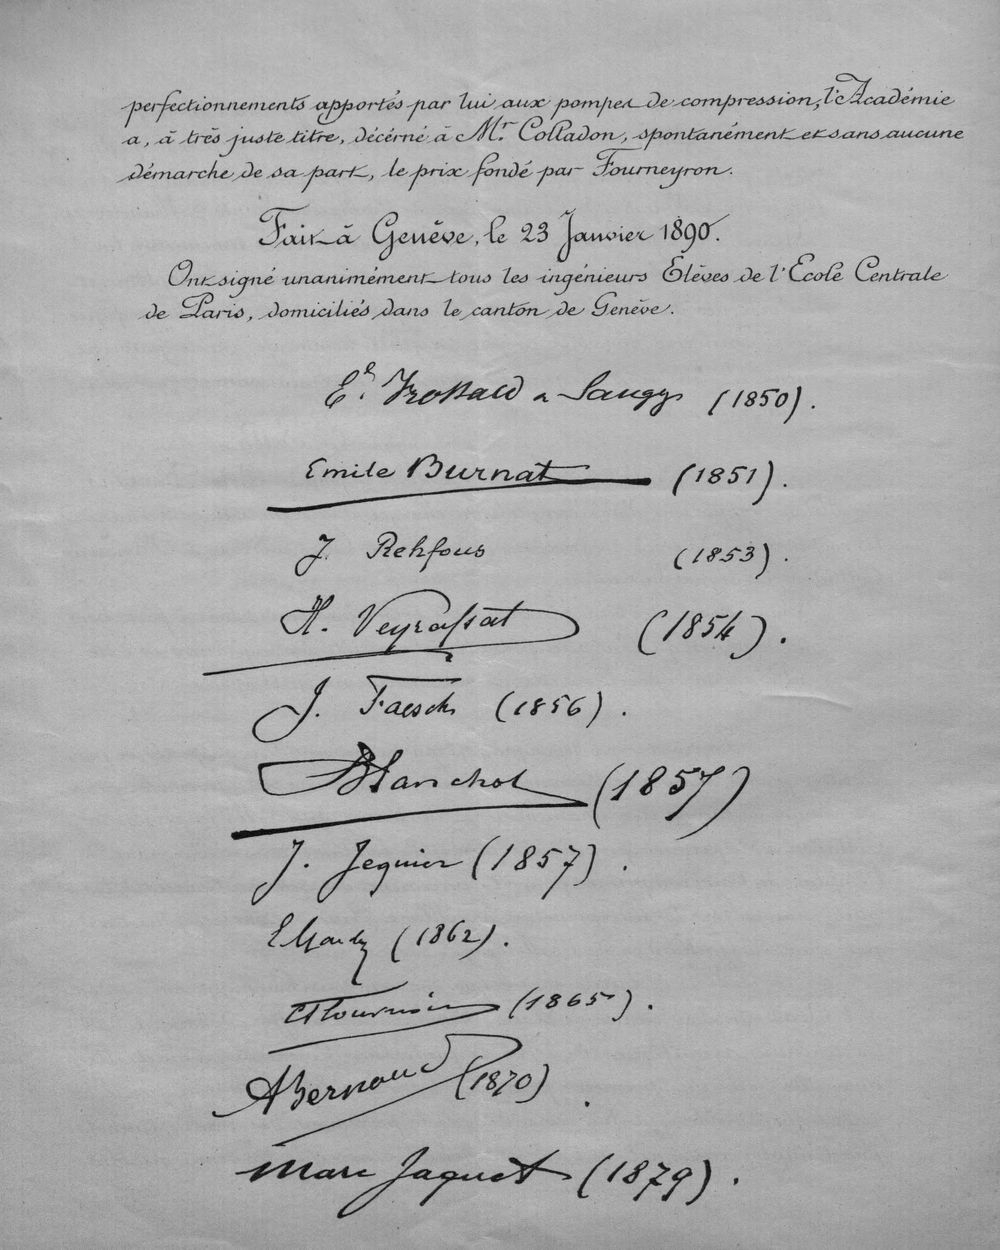 perfectionnements apportés par lui aux pompes de compression, l'Académie
a, à très juste titre, décerné à Mr. Colladon, spontanément et sans aucune
démarche de sa part, le prix fondé par Fourneyron.
Fait à Genève, le 23 Janvier 1890.
Ont signé unanimément tous les ingénieurs Elèves de l'Ecole Centrale
de Paris, domiciliés dans le canton de Genève.
(1850).
Emile Burnat (1851).
J. Rehfous (1853).
H. Veyrassat (1854).
J. Faesch (1856).
Blanchot (1857)
J. Jequier (1857).
(1862).
(1865).
ABernoud (1870).
Marc Jaquet (1879).